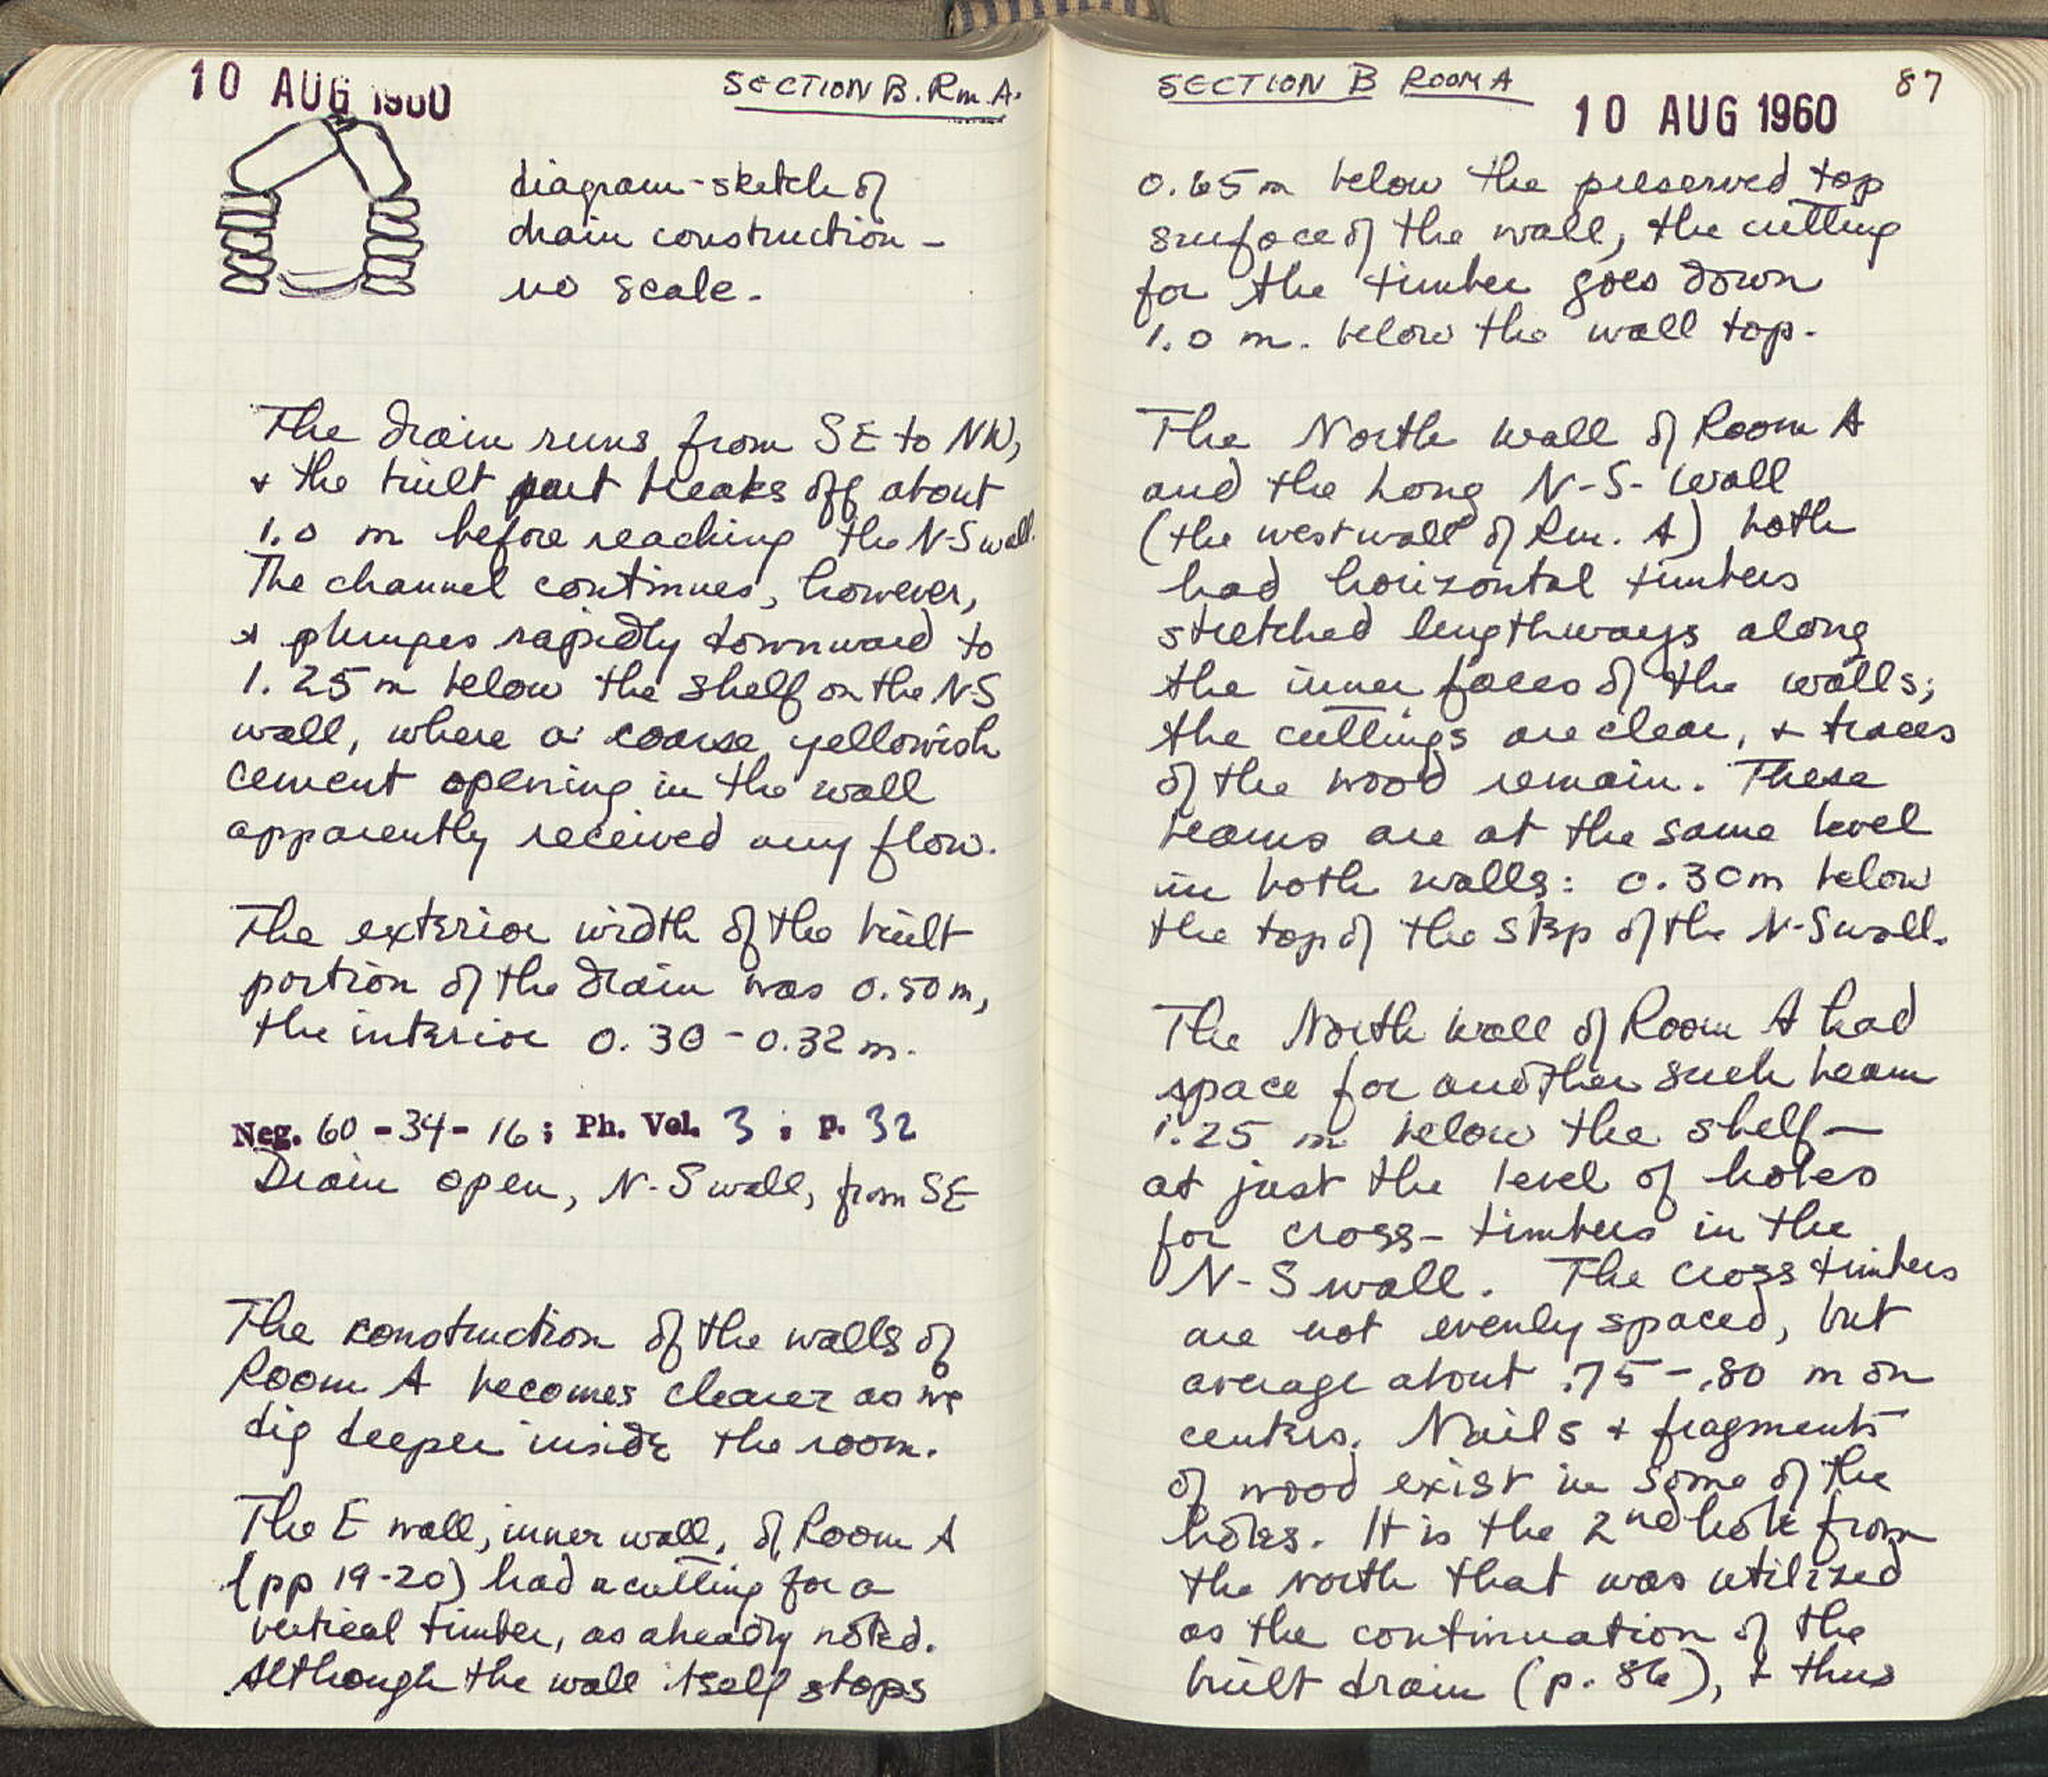 10 AUG 1960
SECTION B. Rm. A.
diagram-sketch of
drain construction –
no scale.
The drain runs from SE to NW,
+ the built part breaks off about
1.0 m before reaching the N-S wall.
The channel continues, however,
+ plunges rapidly downward to
1.25 m below the shelf on the N-S
wall, where a coarse yellowish
cement opening in the wall
apparently received any flow.
The exterior width of the built
portion of the drain was 0.50 m,
the interior 0.30 – 0.32 m.
Neg. 60-34-16; Ph. Vol. 3; p. 32
Drain open, N-S wall, from SE
The construction of the walls of
Room A becomes clearer as we
dig deeper inside the room.
The E wall, inner wall, of Room A
(pp 19-20) had a cutting for a
vertical timber, as already noted.
Although the wall itself stops
SECTION B ROOM A
87
10 AUG 1960
0.65 m below the preserved top
surface of the wall, the cutting
for the timber goes down
1.0 m. below the wall top.
The North wall of Room A
and the Long N-S- Wall
(the west wall of Rm. A) both
had horizontal timbers
stretched lengthways along
the inner faces of the walls;
the cuttings are clear, + traces
of the wood remain. These
beams are at the same level
in both walls: 0.30m below
the top of the step of the N-S wall.
The North wall of Room A had
space for another such beam
1.25 m below the shelf—
at just the level of holes
for cross-timbers in the
N-S wall. The cross timbers
are not evenly spaced, but
average about .75-.80 m on
centers. Nails + fragments
of wood exist in some of the
holes. It is the 2nd hole from
the north that was utilized
as the continuation of the
built drain (p. 86), + thus